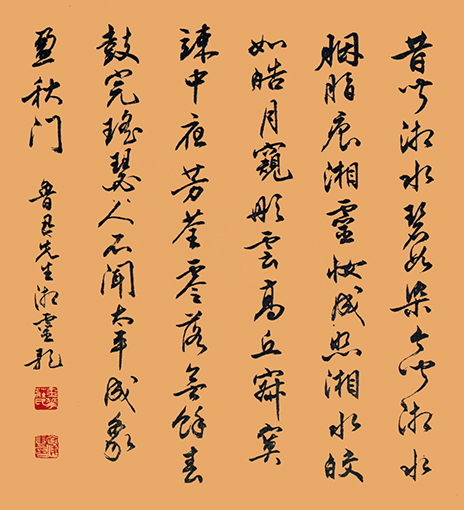 昔闻湘水碧如染今闻湘水
胭脂痕湘靈妝成照湘水皎
如皓月窺彤雲高丘寂寞
竦中夜芳荃零落無餘春
鼓完瑤瑟人不聞太平成象
盈秋门
魯迅先生湘靈歌